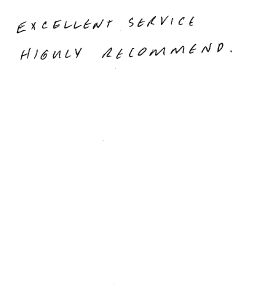 EXCELLENT SERVICE
HIGHLY RECOMMEND.